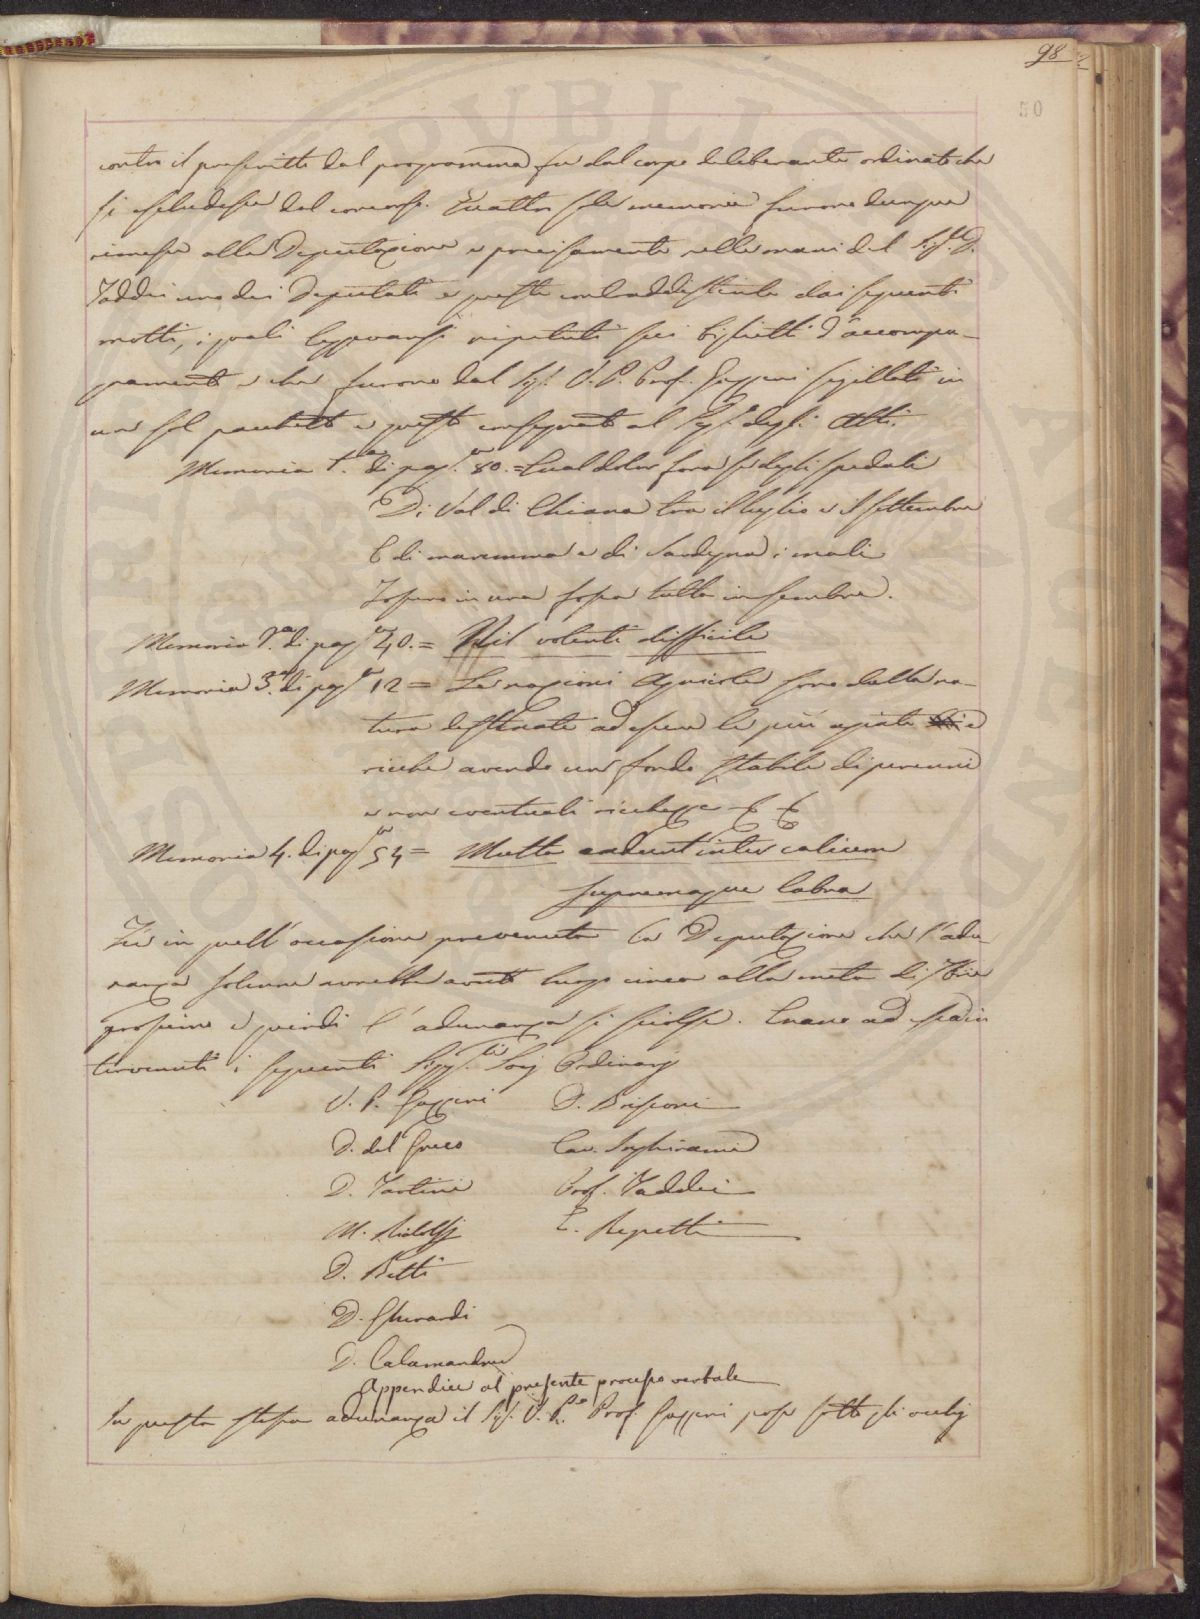 98
50
contro il prescritto dal programma fu dal corpo deliberante ordinato che
si escludesse dal concorso. Quattro sole memorie furono dunque
rimesse alla Deputazione e precisamente nelle mani del Sig.r D.
Taddei uno dei Deputati e queste contraddistinte dai seguenti
motti, i quali leggevansi ripetuti sui biglietti d'accompa-
gnamento e che furono dal Sig. V. P. Prof. Gazzeri sigillati in
un sol pacchetto e questo consegnato al Seg.o degli Atti.
Memoria 1.a di pag.e 80. = Qual dolor fora se degli spedali
Di Val di Chiana tra il luglio e il settembre
E di maremma e di Sardegna i mali
Fossero in una fossa tutti insembre.
Memoria 2.a di pag.e 40. = Nil volenti difficile
Memoria 3.a di pag.e 12 = Le nazioni Agricole sono dalla na-
tura destinate ad essere le più agiate e
ricche avendo un fondo stabile di perenni
e non eventuali ricchezze
Memoria 4. di pag.e 54 = Multa cadunt inter calicem
supremaque labra
Fu in quell'occasione prevenuta la Deputazione che l'adu-
nanza solenne avrebbe avuto luogo circa alla metà di 7bre
prossimo e quindi l'adunanza si sciolse. Erano ad essa in
tervenuti i seguenti Sigg.ri Socj Ordinarj
V. P. Gazzeri D. Brisconi
D. del Greco Cav. Inghirami
D. Tartini Prof. Taddei
M. Ridolfi E. Repetti
D. Betti
D. Gherardi
D. Calamandrei
Appendice al presente processo verbale
In questa stessa adunanza il Sig. V. P.e Prof. Gazzeri pose sotto gli occhj